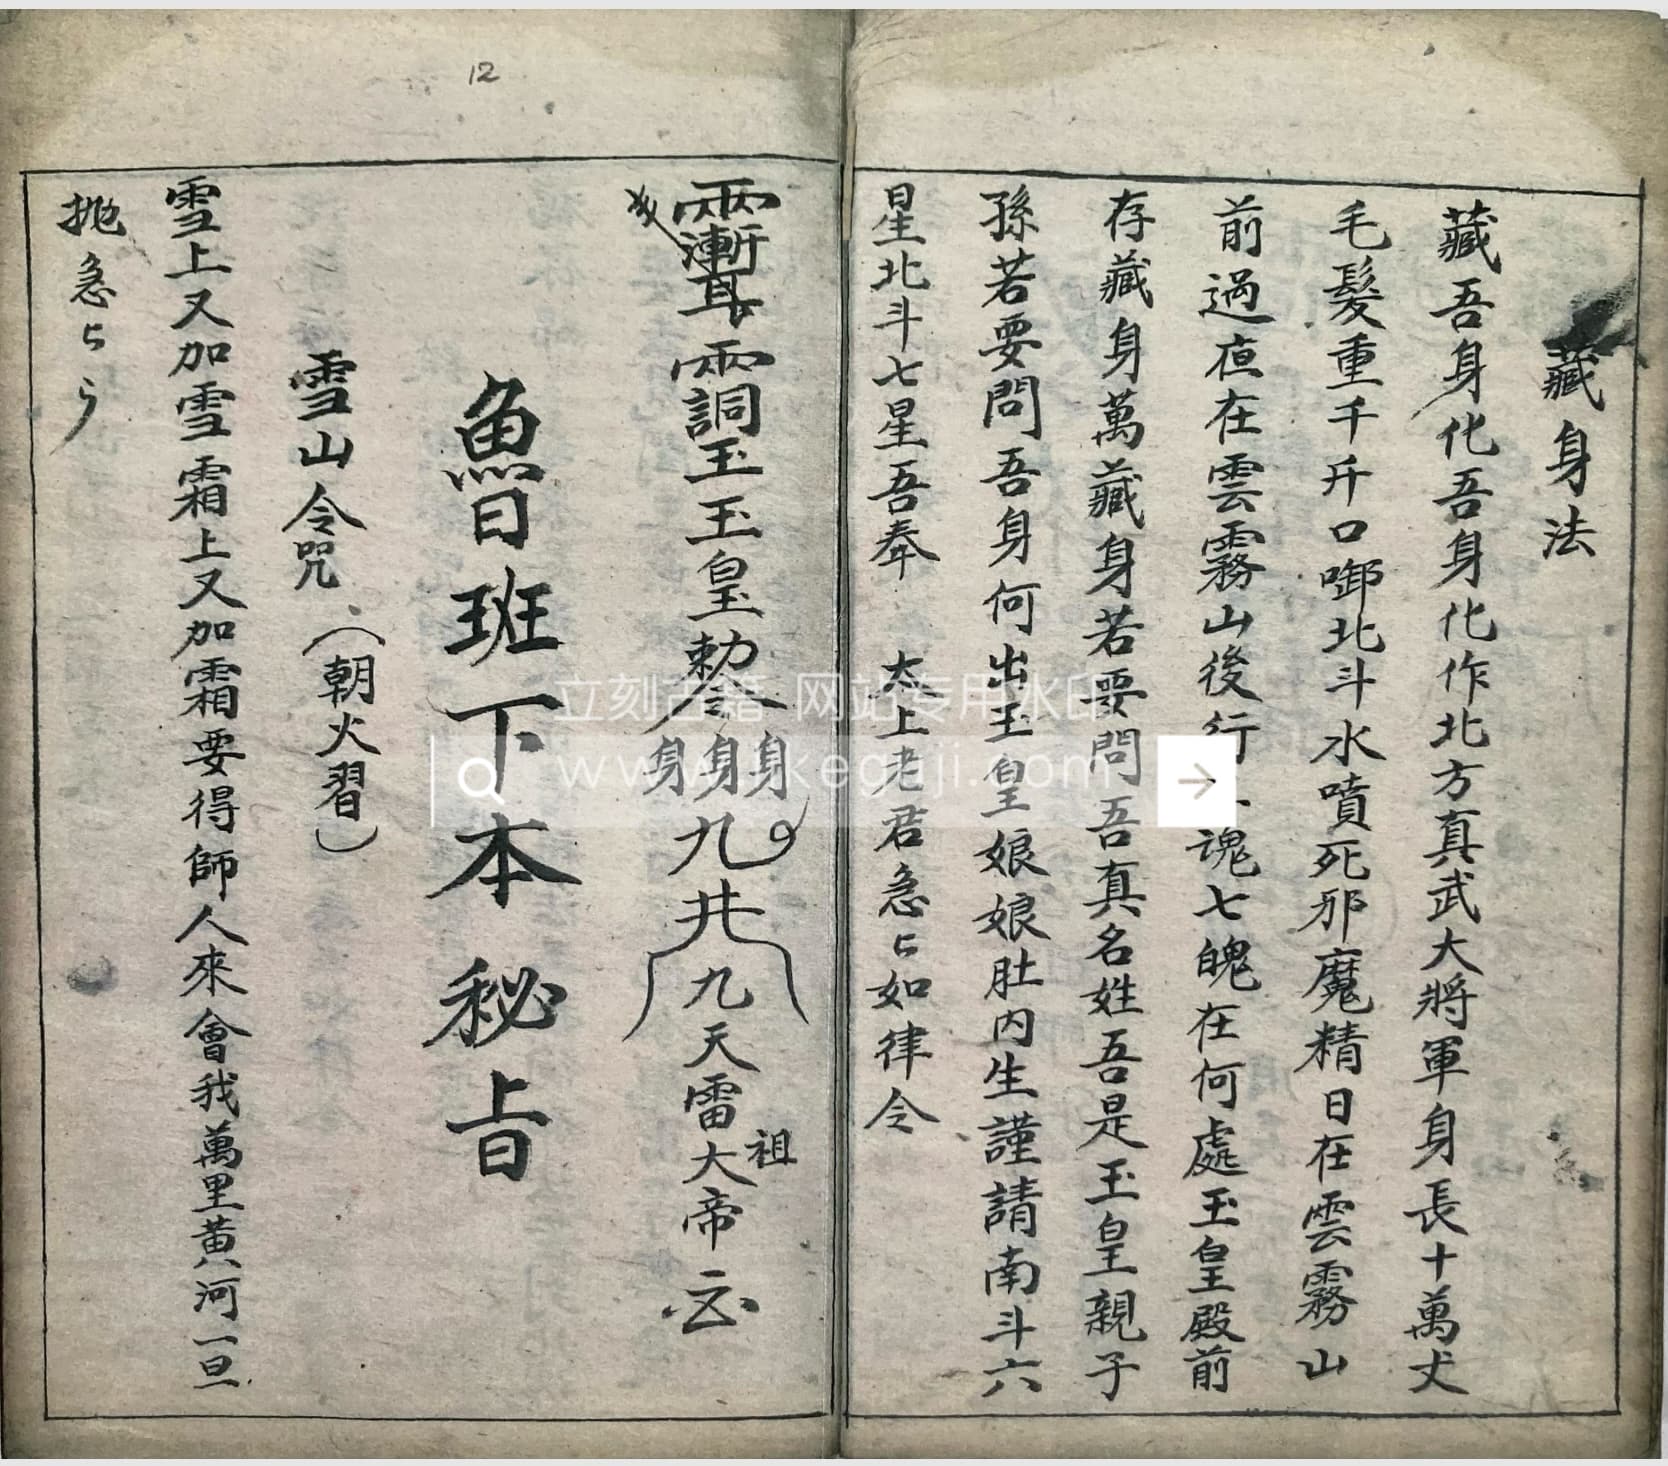 藏身法
藏吾身化吾身化作北方真武大將軍身長十萬丈
毛髮重千斤口啣北斗水噴死邪魔精日在雲霧山
前過夜在雲霧山後行魂七魄在何處玉皇殿前
存藏身萬藏身若要問吾真名姓吾是玉皇親子
孫若要問吾身何出玉皇娘娘肚内生謹請南斗六
星北斗七星吾奉 太上老君急々如律令
玉玉皇勅令身身身九井九天雷大帝
祖
魯班下本秘旨
雪山令咒（朝火習）
雪上又加雪霜上又加霜要得師人來會我萬里黄河一旦
抛急々
12
立刻古籍 网站专用水印